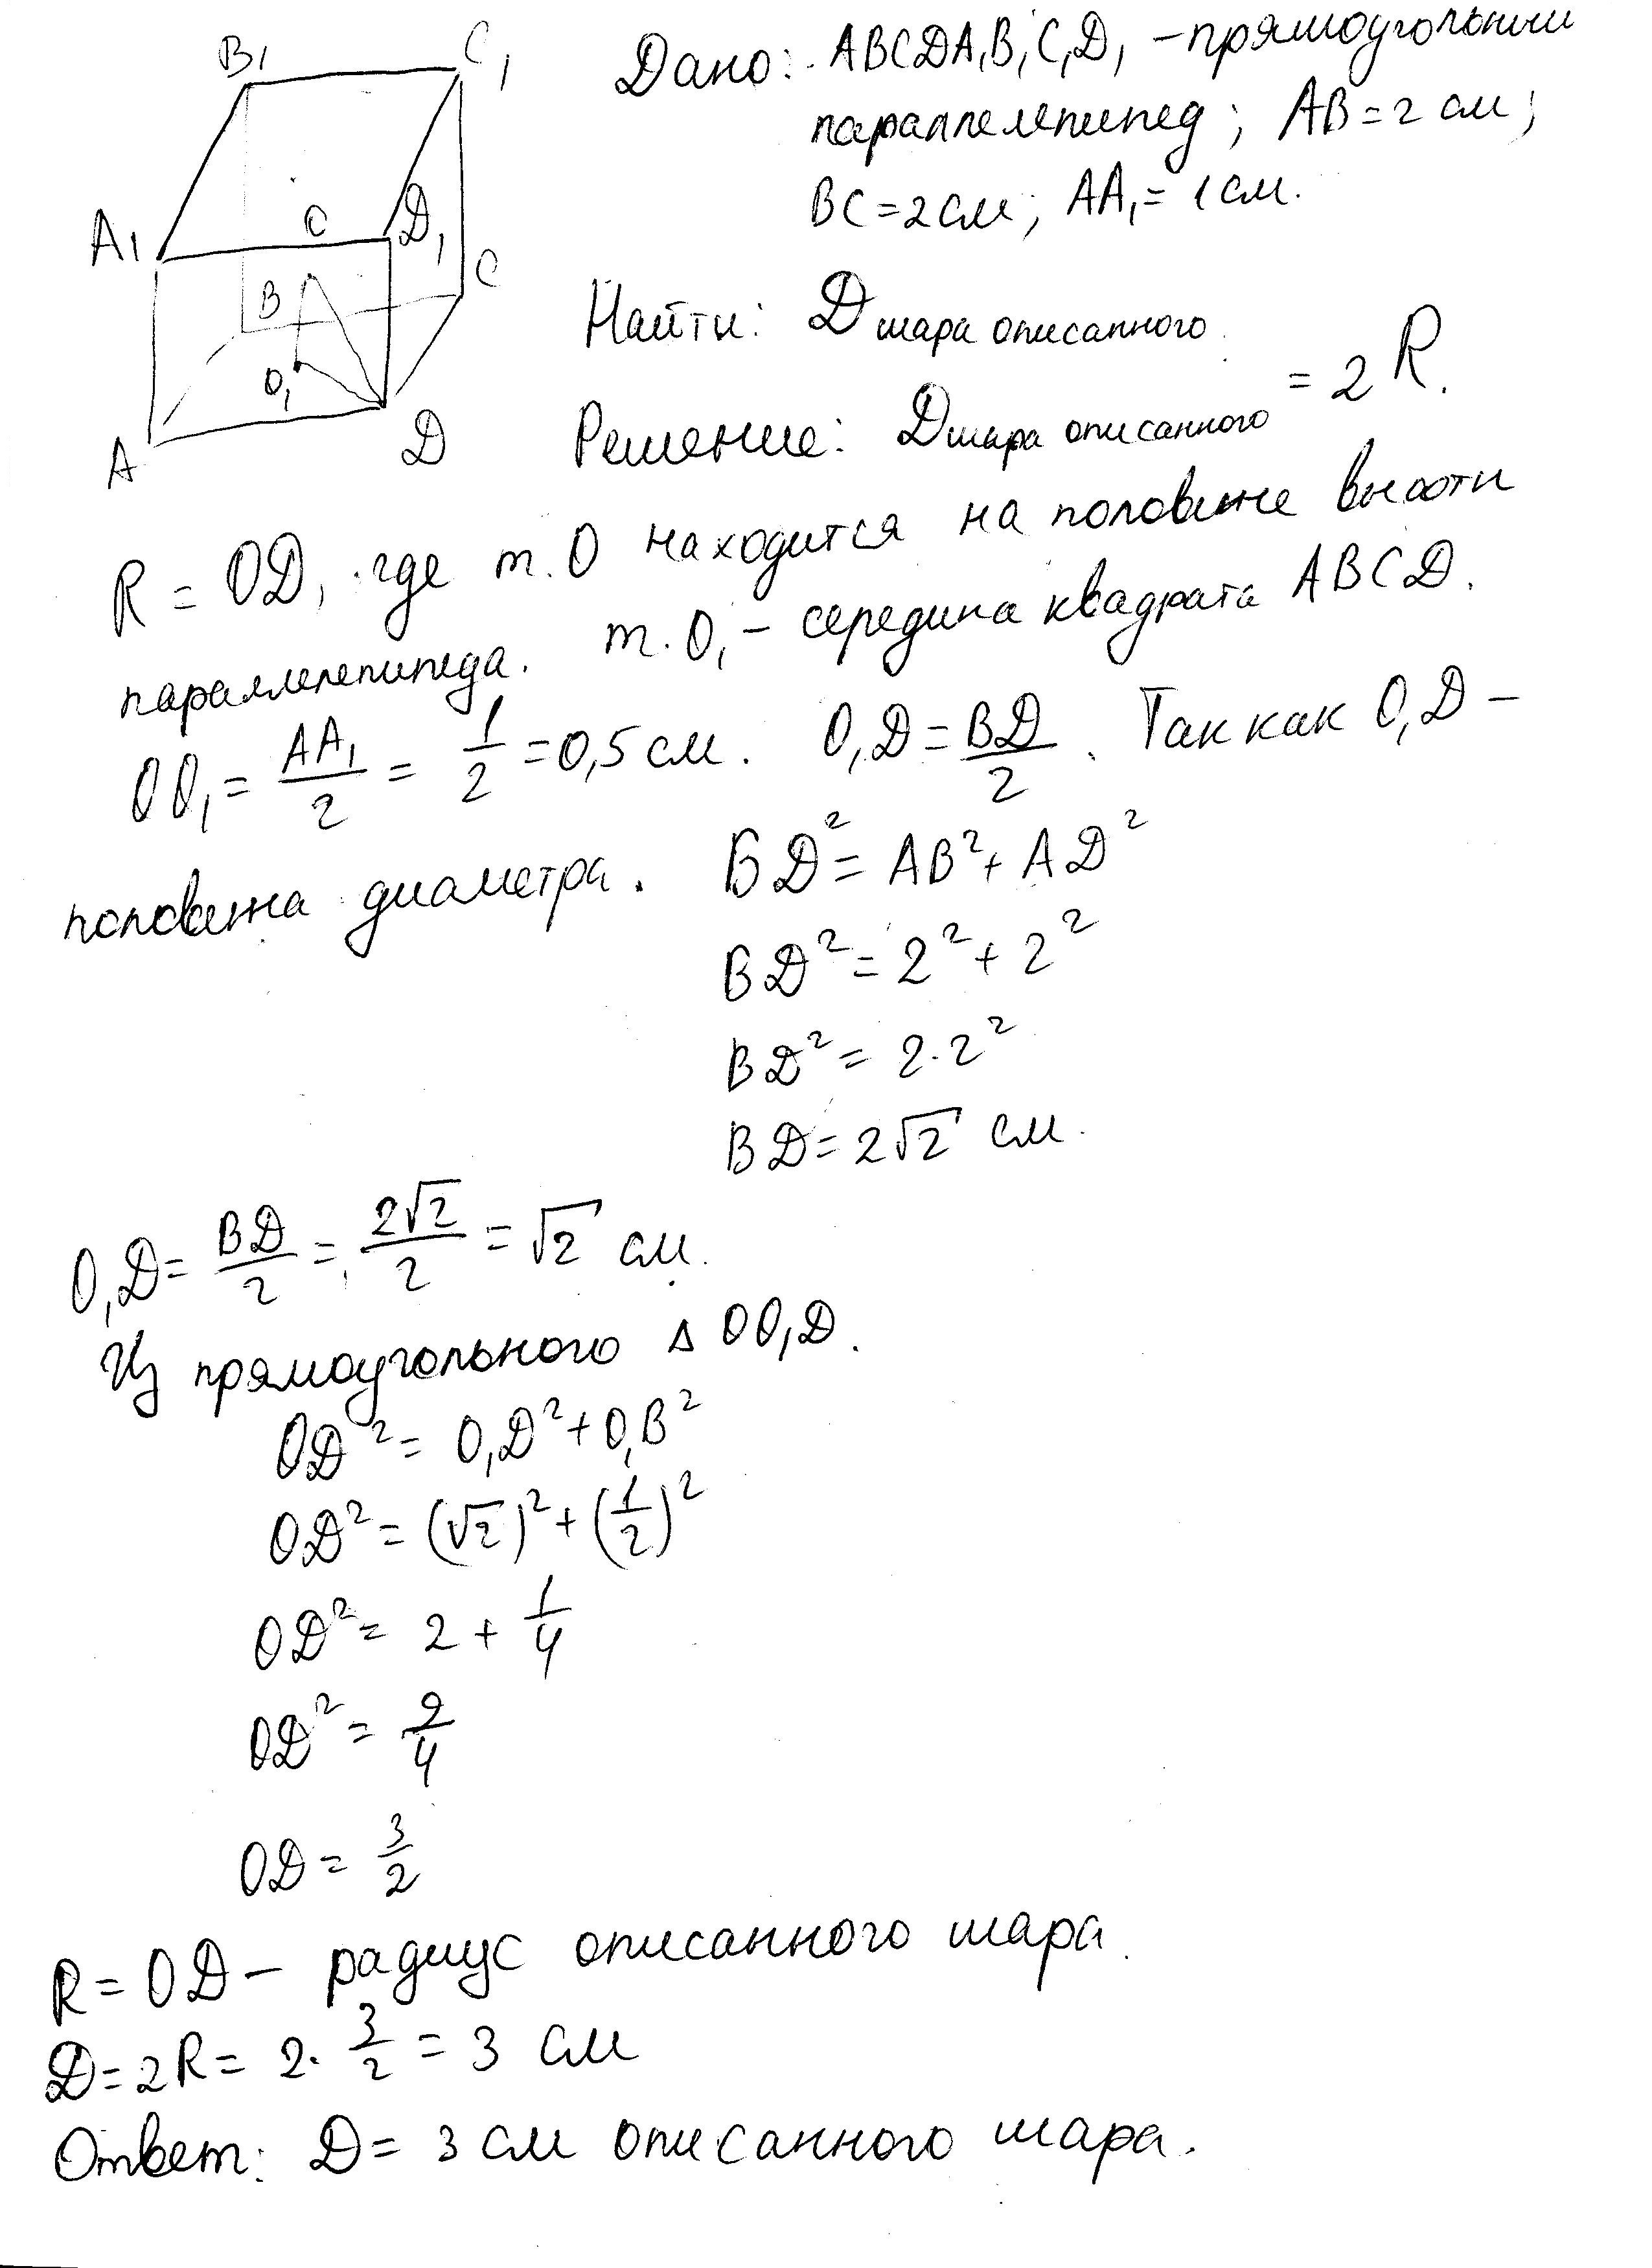 B₁ C₁
A₁ O D₁
B C
O₁
A D
Дано: ABCDA₁B₁C₁D₁ – прямоугольный
параллелепипед; AB = 2 см;
BC = 2 см; AA₁ = 1 см.
Найти: D шара описанного
Решение: D шара описанного = 2R.
R = OD, где т. O находится на половине высоты
параллелепипеда. т. O₁ – середина квадрата ABCD.
OO₁ = AA₁/2 = 1/2 = 0,5 см. O₁D = BD/2. Так как O₁D –
половина диаметра. BD² = AB² + AD²
BD² = 2² + 2²
BD² = 2·2²
BD = 2√2 см.
O₁D = BD/2 = 2√2/2 = √2 см.
Из прямоугольного Δ OO₁D.
OD² = O₁D² + O₁B²
OD² = (√2)² + (1/2)²
OD² = 2 + 1/4
OD² = 9/4
OD = 3/2
R = OD – радиус описанного шара.
D = 2R = 2·3/2 = 3 см
Ответ: D = 3 см описанного шара.